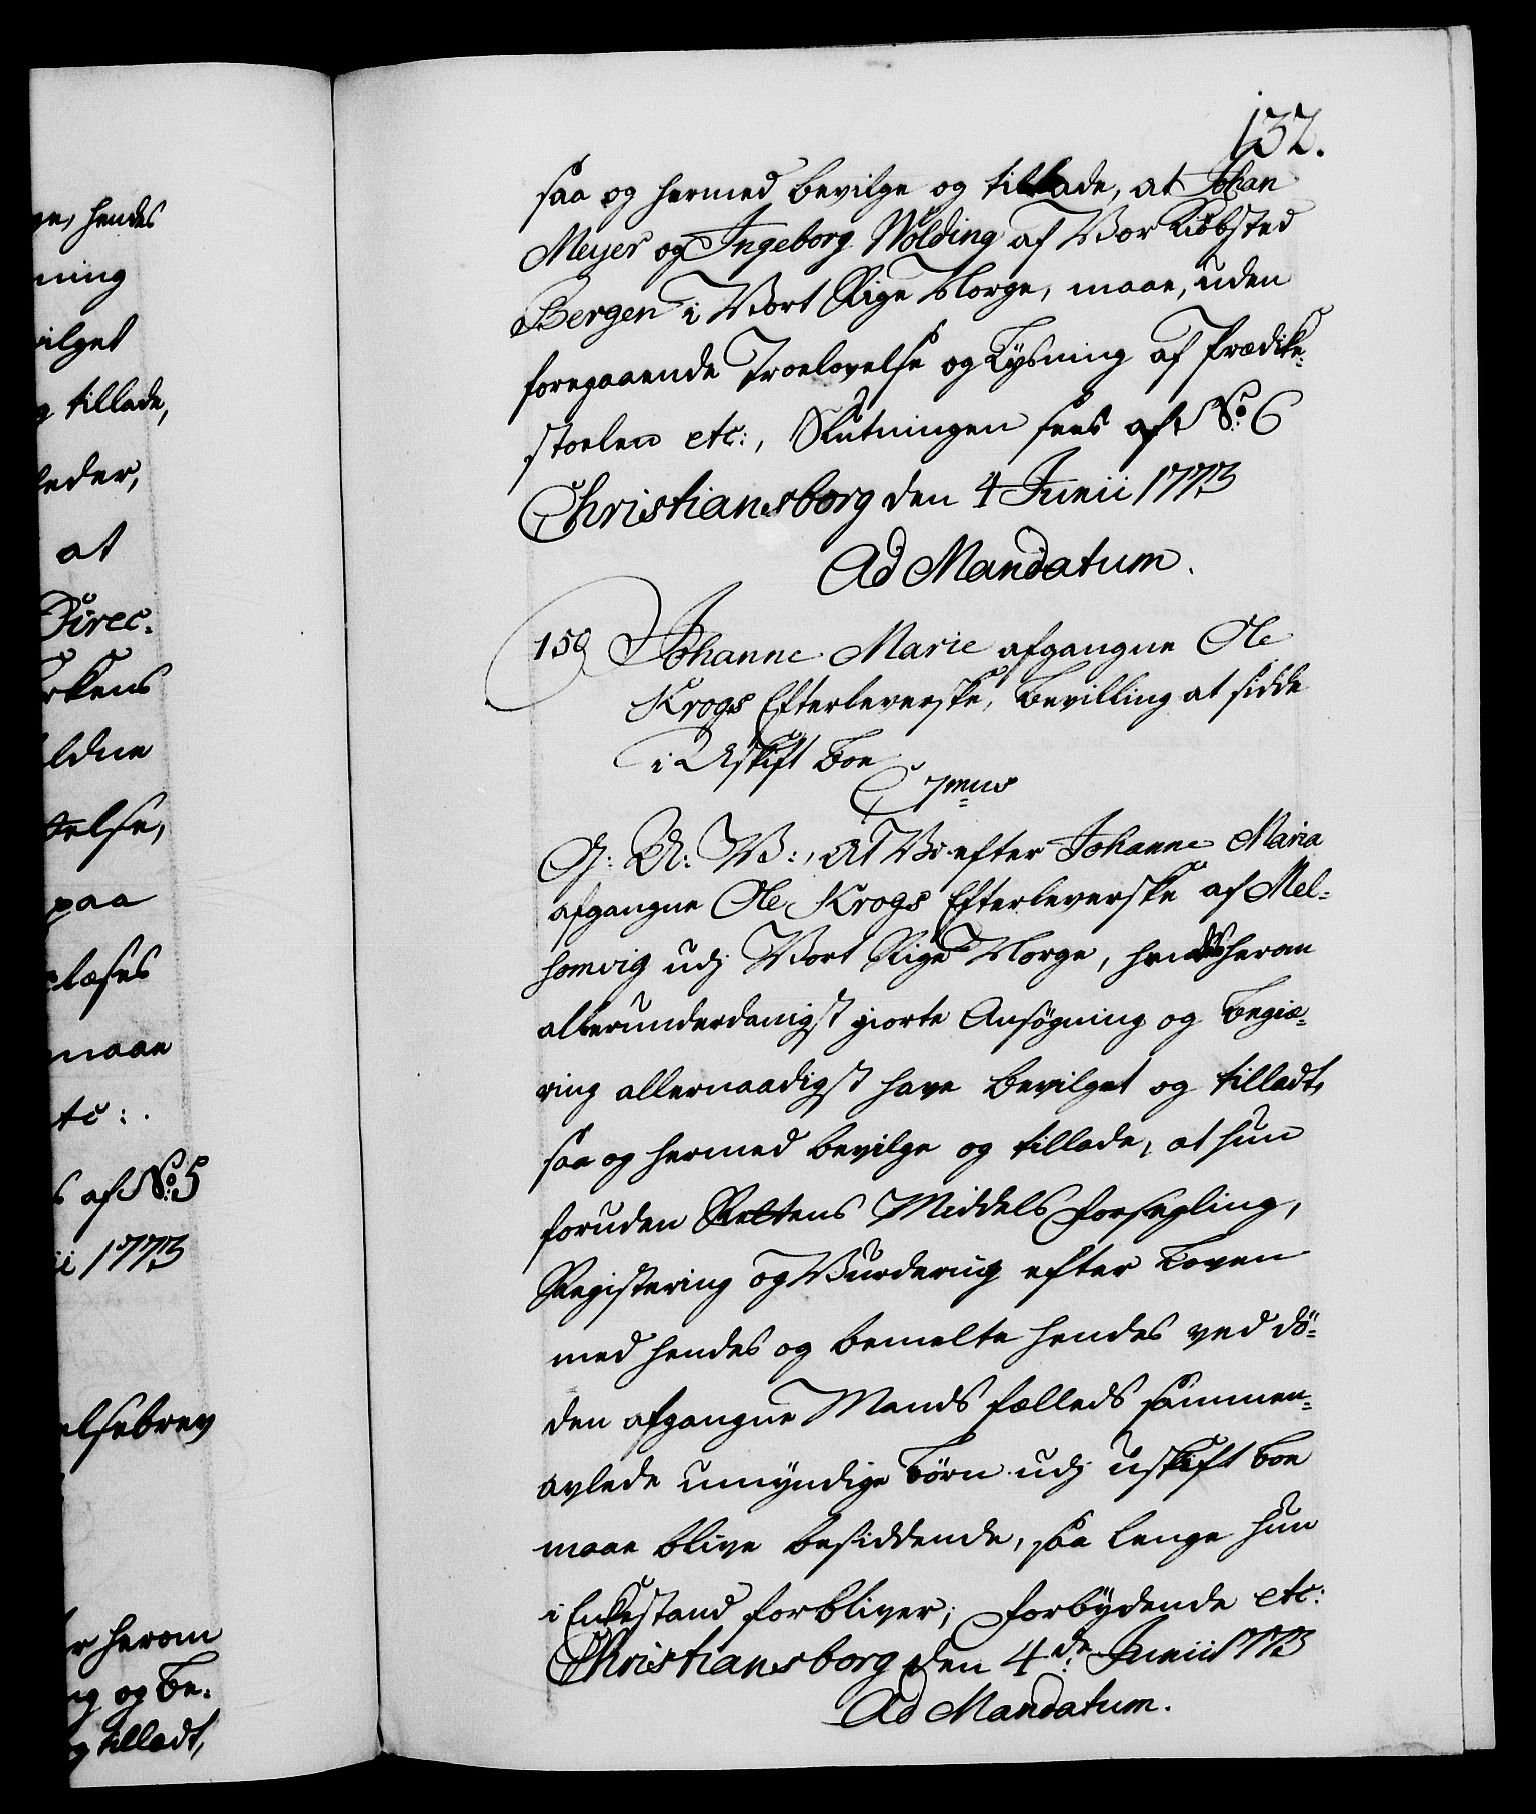 ge, hendes
ning
vilget
g tillade,
leder,
at
Direc-
rkens
ldne
telse,
paa
læses
maae
tc:.
s af No: 5
ii 1773
elsebrev
r herom
ng og Be-
g tilladt,
132.
saa og hermed bevilge og tillade, at Johan
Meyer og Ingeborg Wölding af Vor Kiøbsted
Bergen i Vort Rige Norge, maae, uden
foregaaende Troelovelse og Lysning af Prædike-
stoelen etc:, Slutningen sees af No: 6
Christiansborg den 4 Junii 1773
Ad Mandatum.
159 Johanne Marie afgangne Ole
Krogs Efterleverske, Bevilling at sidde
i Uskift Boe
C 7mus
G: A: V:, At Vi efter Johanne Maria
afgangne Ole Krogs Efterleverske af Mel-
homvig udj Vort Rige Norge, hendes herom
allerunderdanigst giorte Ansøgning og Begiæ-
ring allernaadigst have bevilget og tilladt,
saa og hermed bevilge og tillade, at hun
foruden Rettens Middels Forsegling,
Registering og Vurdering efter Loven
med hendes og bemelte hendes ved Dö-
den afgangne Mands fælleds sammen-
avlede umyndige Børn udj uskift Boe
maae blive besiddende, saa lenge hun
i Enkestand forbliver; Forbydende etc:
Christiansborg den 4de Junii 1773
Ad Mandatum.